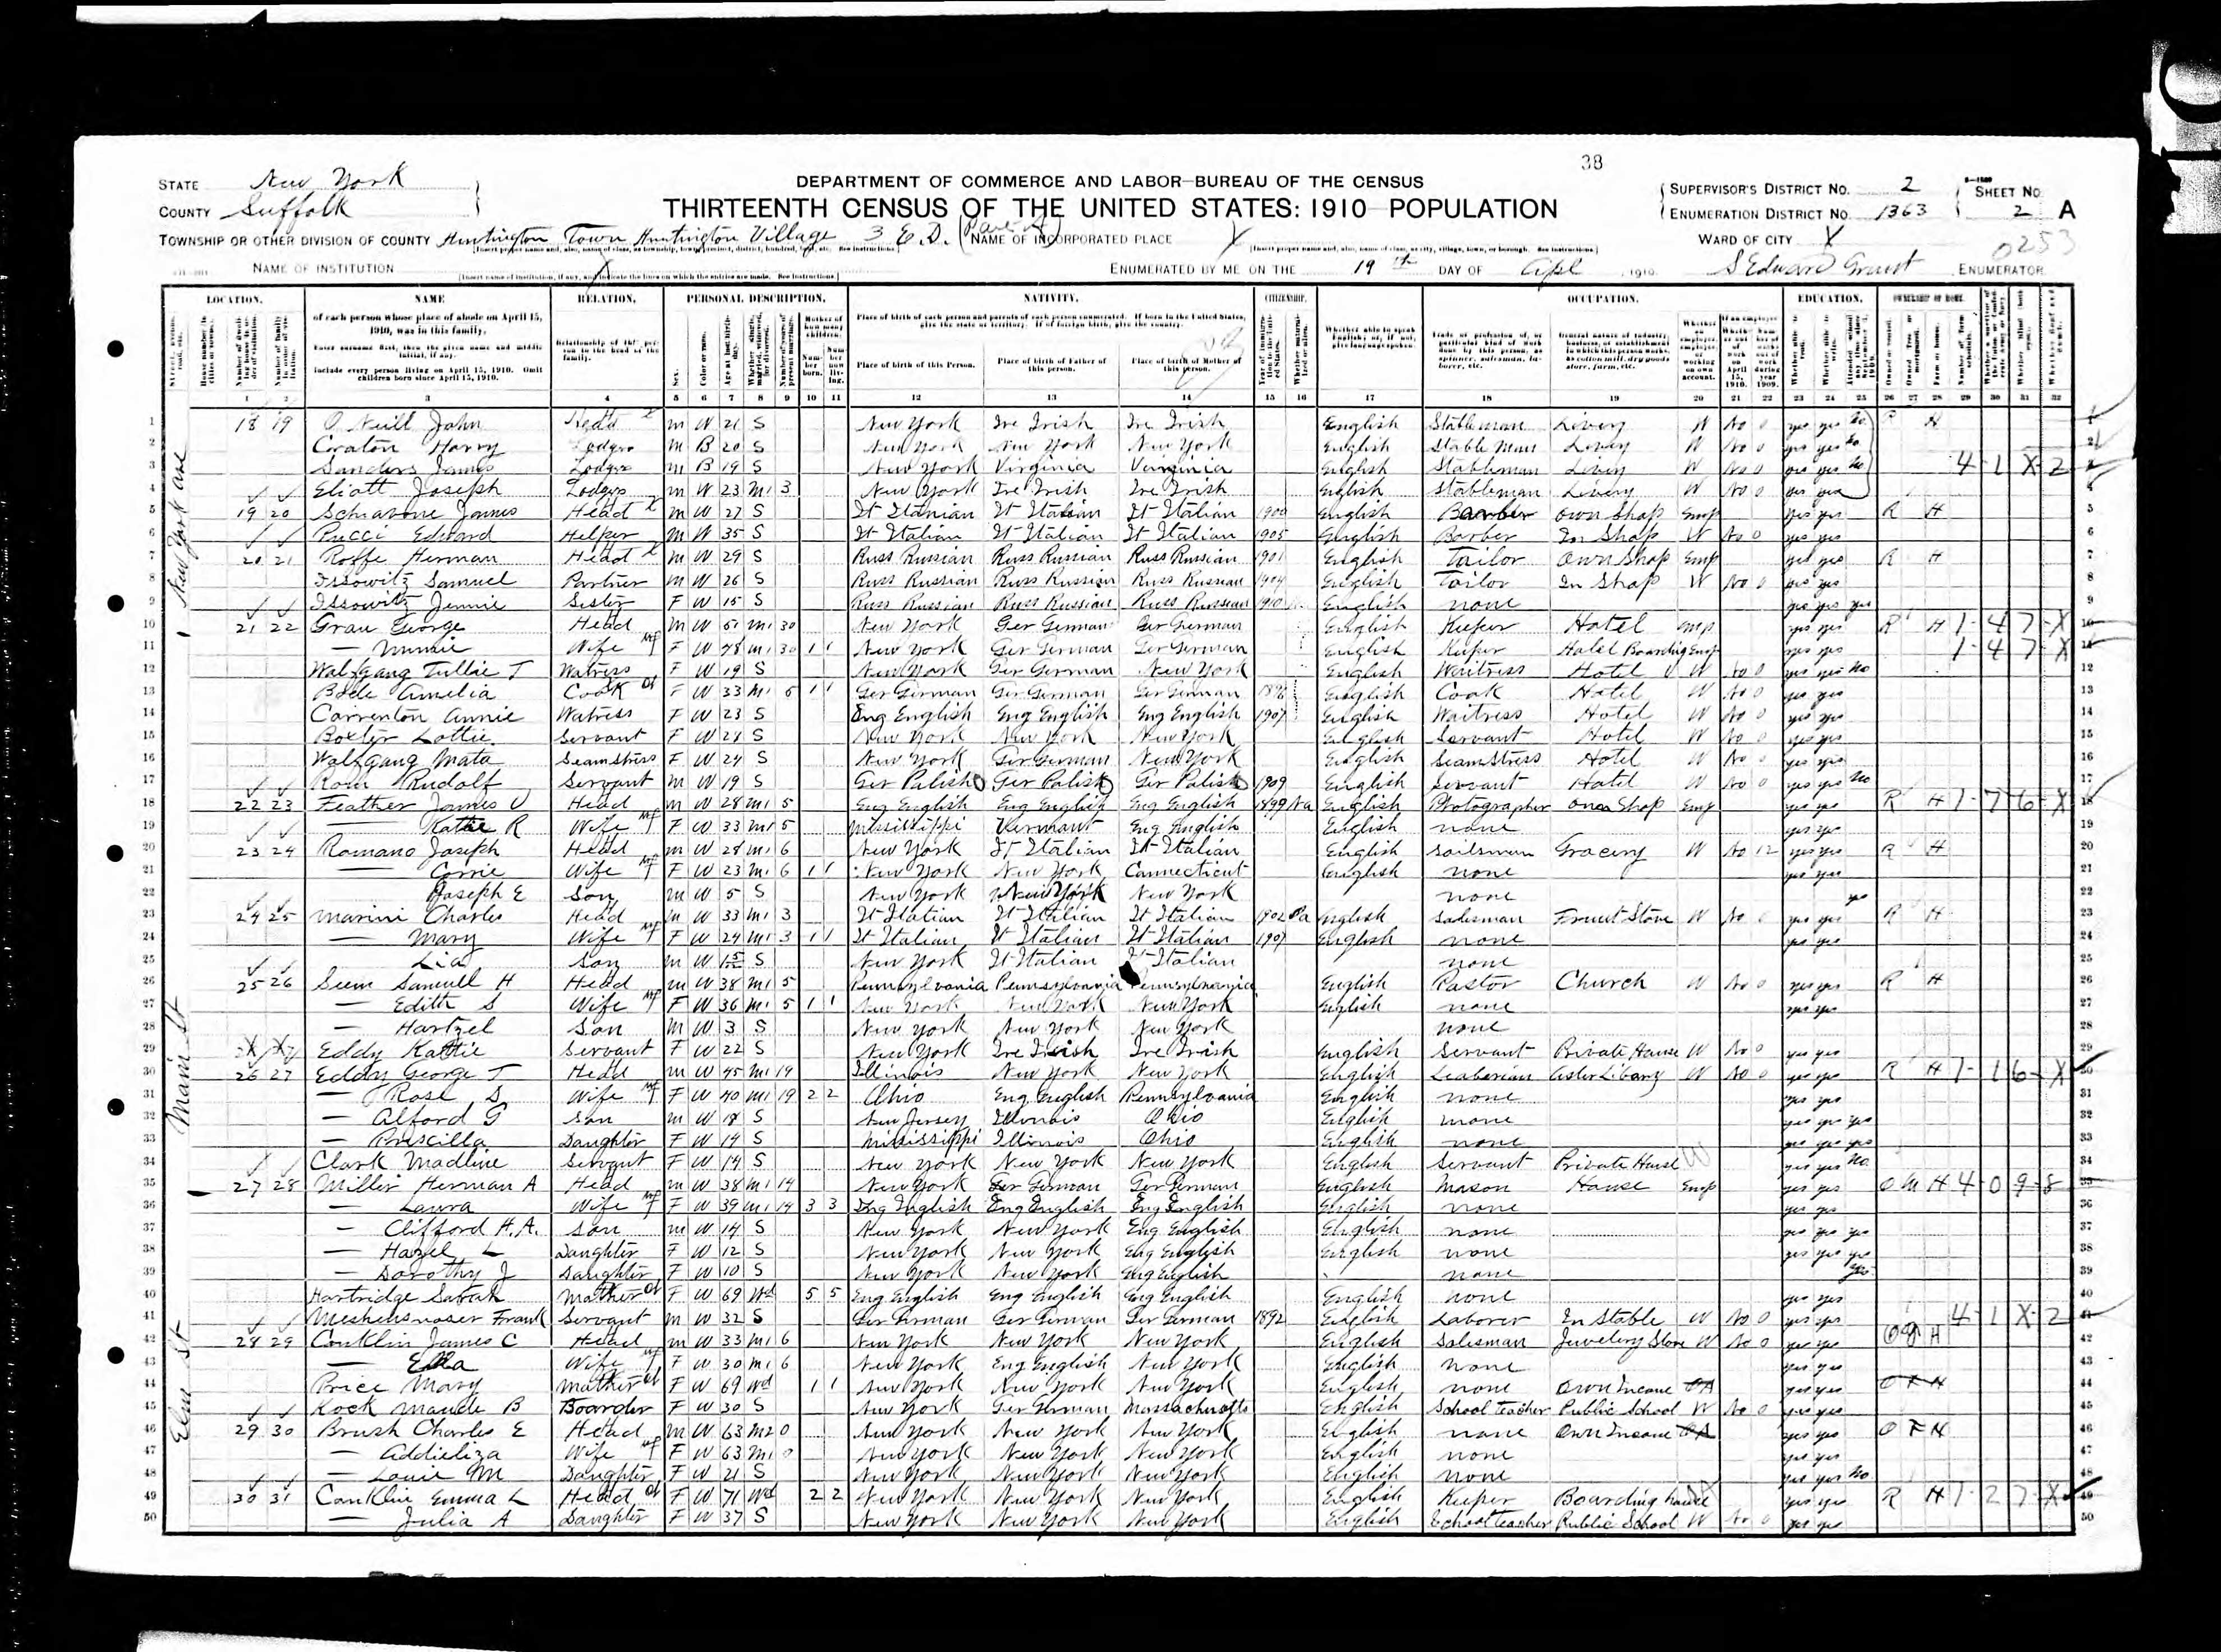 38
STATE New York
COUNTY Suffolk
DEPARTMENT OF COMMERCE AND LABOR—BUREAU OF THE CENSUS
THIRTEENTH CENSUS OF THE UNITED STATES: 1910—POPULATION
SUPERVISOR'S DISTRICT NO. 2
ENUMERATION DISTRICT NO. 1363
SHEET NO. 2 A
TOWNSHIP OR OTHER DIVISION OF COUNTY Huntington Town Huntington Village 3 E.D.
NAME OF INCORPORATED PLACE X
WARD OF CITY X
0253
NAME OF INSTITUTION X
ENUMERATED BY ME ON THE 19th DAY OF Apl, 1910. S Edward Grant, ENUMERATOR
LOCATION. NAME RELATION. PERSONAL DESCRIPTION. NATIVITY. CITIZENSHIP. OCCUPATION. EDUCATION. OWNERSHIP OF HOME.
of each person whose place of abode on April 15, 1910, was in this family.
Enter surname first, then the given name and middle initial, if any.
Include every person living on April 15, 1910. Omit children born since April 15, 1910.
Place of birth of this Person. Place of birth of Father of this person. Place of birth of Mother of this person.
New York ave
1 18 19 O Neill John Head m W 21 S New York Ire Irish Ire Irish English Stableman Livery W No 0 yes yes No R H
2 Craton Harry Lodger m B 20 S New York New York New York English Stableman Livery W No 0 yes yes No
3 Sanders James Lodger m B 19 S New York Virginia Virginia English Stableman Livery W No 0 yes yes No 4-1 X-2
4 Eliott Joseph Lodger m W 23 M1 3 New York Ire Irish Ire Irish English Stableman Livery W No 0 yes yes
5 19 20 Schiavone James Head m W 27 S It Italian It Italian It Italian 1900 English Barber Own Shop Emp yes yes R H
6 Pucci Edward Helper m W 35 S It Italian It Italian It Italian 1905 English Barber In Shop W No 0 yes yes
7 20 21 Roffe Herman Head m W 29 S Russ Russian Russ Russian Russ Russian 1901 English Tailor Own Shop Emp yes yes R H
8 Issowitz Samuel Partner m W 26 S Russ Russian Russ Russian Russ Russian 1904 English Tailor In Shop W No 0 yes yes
9 Issowitz Jennie Sister F W 15 S Russ Russian Russ Russian Russ Russian 1910 English none yes yes yes
10 21 22 Grau George Head m W 51 M1 30 New York Ger German Ger German English Keeper Hotel Emp yes yes R H 1-4 7-X
11 — Minnie Wife F W 48 M1 30 1 1 New York Ger German Ger German English Keeper Hotel Boarding Emp yes yes 1-4 7-X
12 Walfgang Tillie T Watress F W 19 S New York Ger German New York English Waitress Hotel W No 0 yes yes No
13 Amelia Cook F W 33 M1 5 1 1 Ger German Ger German Ger German English Cook Hotel W No 0 yes yes
14 Carrenton Annie Watress F W 23 S Eng English Eng English Eng English 1907 English Waitress Hotel W No 0 yes yes
15 Boxter Lottie Servant F W 21 S New York New York New York English Servant Hotel W No 0 yes yes
16 Walfgang Mata Seamstress F W 24 S New York Ger German New York English Seamstress Hotel W No 0 yes yes
17 Rudolf Servant m W 19 S Ger Polish Ger Polish Ger Polish 1909 English Servant Hotel W No 0 yes yes No
18 22 23 Feather James Head m W 28 M1 5 Eng English Eng English Eng English 1899 Na English Photographer Own Shop Emp yes yes R H 1-7 6-X
19 — Katie R Wife F W 33 M1 5 Mississippi Vermont Eng English English none yes yes
20 23 24 Romano Joseph Head m W 28 M1 6 New York It Italian It Italian English Sailsman Grocery W No 12 yes yes R H
21 — Carrie Wife F W 23 M1 6 1 1 New York New York Connecticut English none yes yes
22 Joseph E Son m W 5 S New York New York New York none yes
23 24 25 Marini Charles Head m W 33 M1 3 It Italian It Italian It Italian 1902 Pa English Salesman Fruit Store W No 0 yes yes R H
24 — Mary Wife F W 24 M1 3 1 1 It Italian It Italian It Italian 1907 English none yes yes
25 — Lia Son m W S New York It Italian It Italian none
Main St
26 25 26 Samuell H Head m W 38 M1 5 Pennsylvania Pennsylvania Pennsylvania English Pastor Church W No 0 yes yes R H
27 — Edith S Wife F W 36 M1 5 1 1 New York New York New York English none yes yes
28 — Hartzel Son m W 3 S New York New York New York none
29 Eddy Kattie Servant F W 22 S New York Ire Irish Ire Irish English Servant Private House W No 0 yes yes
30 26 27 Eddy George T Head m W 45 M1 19 Illinois New York New York English Leaberian Astor Libary W No 0 yes yes R H 1-1 6-X
31 — Rose S Wife F W 40 M1 19 2 2 Ohio Eng English Pennsylvania English none yes yes
32 — Alford G Son m W 18 S New Jersey Illinois Ohio English none yes yes yes
33 — Priscilla Daughter F W 14 S Mississippi Illinois Ohio English none yes yes yes
34 Clark Madline Servant F W 14 S New York New York New York English Servant Private House yes yes No
35 27 28 Miller Herman A Head m W 38 M1 14 New York Ger German Ger German English Mason House Emp yes yes O M H 4-0 9-8
36 — Laura Wife F W 39 M1 14 3 3 Eng English Eng English Eng English English none yes yes
37 — Clifford H.A. Son m W 14 S New York New York Eng English English none yes yes yes
38 — Hazel L Daughter F W 12 S New York New York Eng English English none yes yes yes
39 — Dorothy J Daughter F W 10 S New York New York Eng English none yes
40 Hartridge Sarah Mother F W 69 Wd 5 5 Eng English Eng English Eng English English none yes yes
41 Frank Servant m W 32 S Ger German Ger German Ger German 1892 English Laborer In Stable W No 0 yes yes 4-1 X-2
Elm St
42 28 29 Conklin James C Head m W 33 M1 6 New York New York New York English Salesman Juvelery Store W No 0 yes yes H
43 — Ella Wife F W 30 M1 6 New York Eng English New York English none yes yes
44 Price Mary Mother F W 69 Wd 1 1 New York New York New York English none Own Income OA yes yes O F H
45 Kock Maude B Boarder F W 30 S New York Ger German Massachusetts English School teacher Public School W No 0 yes yes
46 29 30 Brush Charles E Head m W 63 M2 0 New York New York New York English none Own Income OA yes yes O F H
47 — Addieliza Wife F W 63 M1 0 New York New York New York English none yes yes
48 — Louie M Daughter F W 21 S New York New York New York English none yes yes No
49 30 31 Conklin Emma L Head F W 71 Wd 2 2 New York New York New York English Keeper Boarding house yes yes R H 1-2 7-X
50 — Julia A Daughter F W 37 S New York New York New York English School teacher Public School W No 0 yes yes